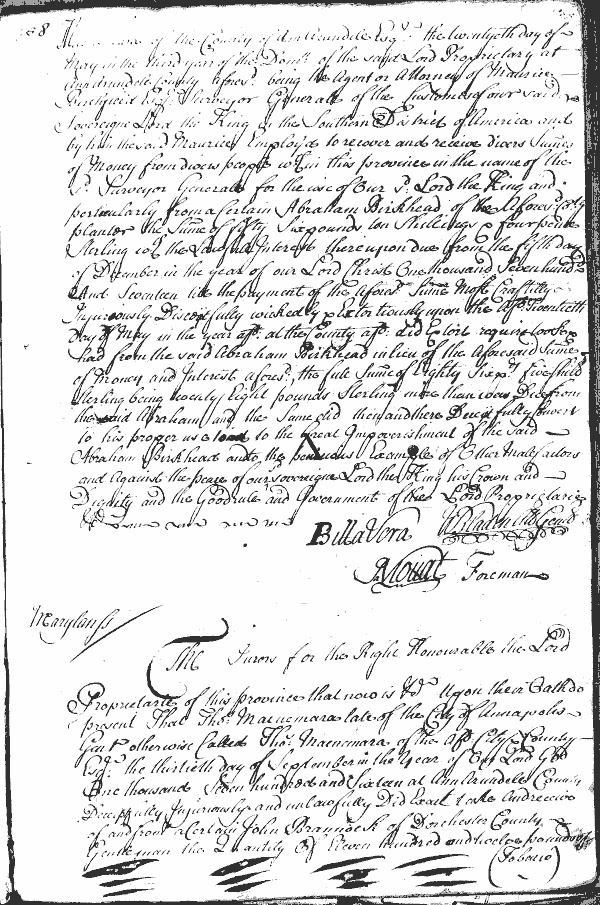 of the County of Ann Arundele Esqr. the twentieth day of
May in the third year of the Domn. of the said Lord Proprietary at
Annarundele County aforesd. being the Agent or Attorney of Maurice
Esqr. Surveyor Generale of the Customes of our said
Sovereigne Lord the King in the Southern District of America and
by him the said Maurice Employ'd to recover and receive divers Sumes
of Money from divers people wthin this province in the name of the
sd. Surveyor Generale for the use of Our sd. Lord the King and
particularly from a Certain Abraham Birkhead of the aforesd. County
planter the Sume of fifty Six pounds ten Shillings & four pence
Sterling wth the Lawful Interest thereupon due from the fifth day
of December in the year of our Lord Christ One thousand Seven hund:
And Seventeen till the payment of the aforesd. Sume Most Craftily
Injuriously Deceitfully wickedly & extortiously upon the Afd. Twentieth
Day of May in the year afd. at the County afd. did Extort require
had from the said Abraham Birkhead in lieu of the Aforesaid Sume
of Money and Interest aforesd. the full Sume of Eighty Six pds. five shill
sterling being twenty Eight pounds Sterling more than was Due from
the said Abraham and the Same did then and there Deceitfully Convert
to his proper use to the Great Impoverishment of the said
Abraham Birkhead and to the pernicious Example of Other Malefactors
and Against the peace of our sovereigne Lord the King his Crown and
Dignity and the Good rule and Government of the Lord Proprietarie
&c
Billa Vera Wm. Bladen Cld Gend
Mouat Foreman
Maryland ss
The Jurors for the Right Honourable the Lord
Proprietarie of this province that now is &c Upon their Oath do
present That Thos. Macnemara late of the City of Annapolis
Gent otherwise Called Thos. Macnemara of the Afd. City & County
Esqr. the thirtieth day of September in the Year of Our Lord God
One thousand Seven hundred and Sixteen at Ann Arundele County
Deceitfully Injuriously and unlawfully Did Exact take And receive
of and from a Certain John Brannock of Dorchester County
Gentleman the Quantity Of Eleven hundred and twelve pounds of
(Tobacco)